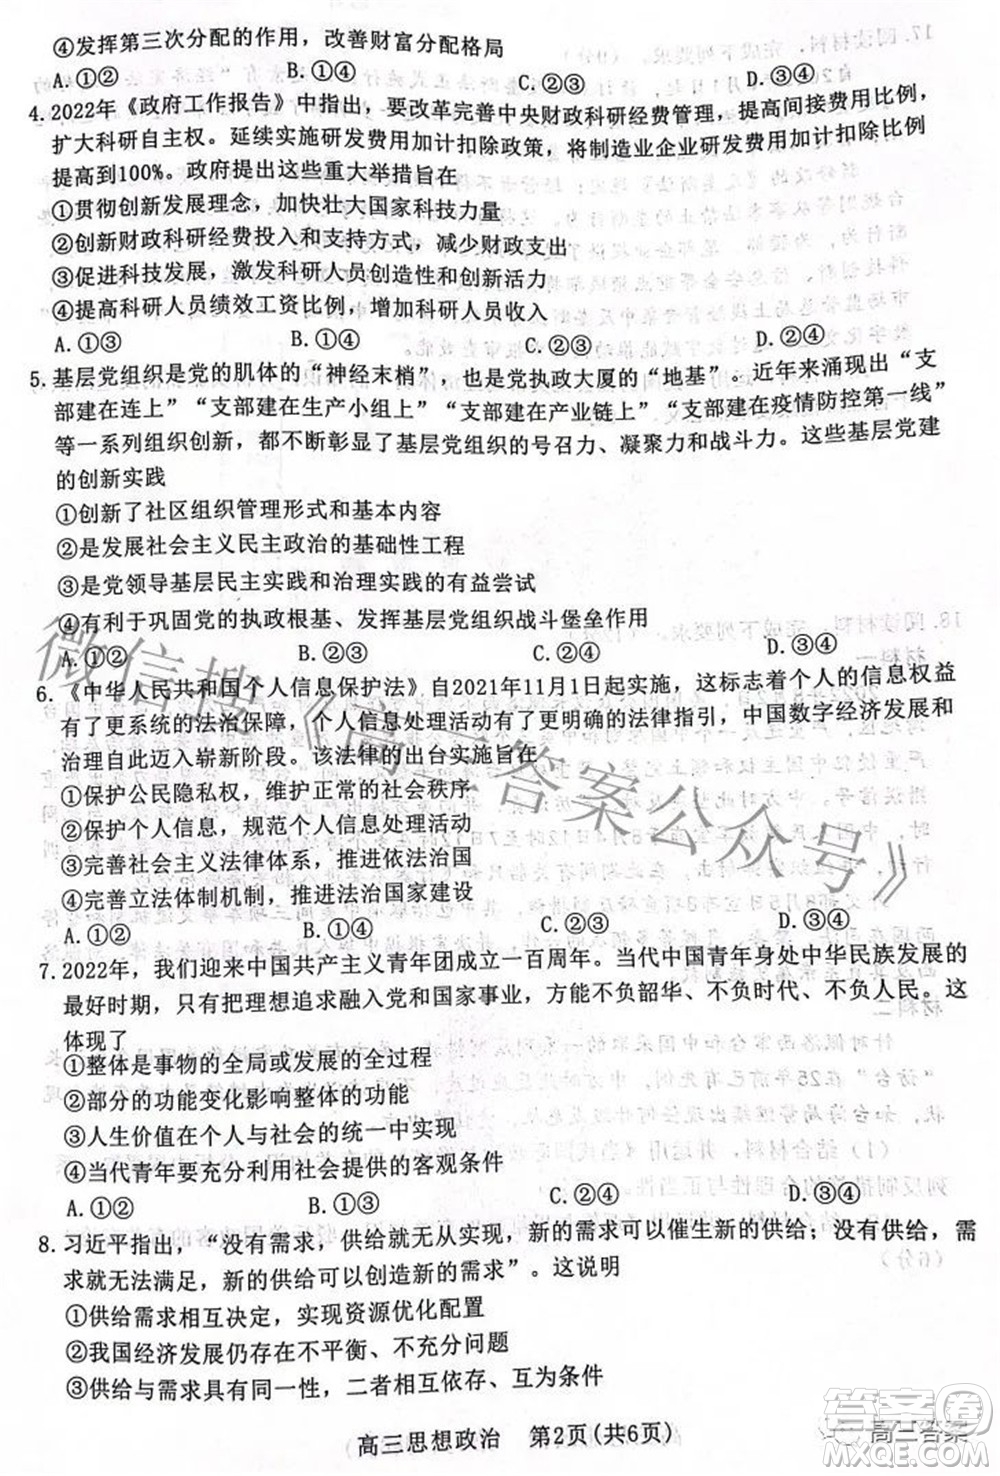 ④发挥第三次分配的作用，改善财富分配格局
A.①② B.①④ C.②③ D.③④
4.2022年《政府工作报告》中指出，要改革完善中央财政科研经费管理，提高间接费用比例，
扩大科研自主权。延续实施研发费用加计扣除政策，将制造业企业研发费用加计扣除比例
提高到100%。政府提出这些重大举措旨在
①贯彻创新发展理念，加快壮大国家科技力量
②创新财政科研经费投入和支持方式，减少财政支出
③促进科技发展，激发科研人员创造性和创新活力
④提高科研人员绩效工资比例，增加科研人员收入
A.①③ B.①④ C.②③ D.②④
5.基层党组织是党的肌体的“神经末梢”，也是党执政大厦的“地基”。近年来涌现出“支
部建在连上”“支部建在生产小组上”“支部建在产业链上”“支部建在疫情防控第一线”
等一系列组织创新，不断彰显了基层党组织的号召力、凝聚力和战斗力。这些基层党建
的创新实践
①创新了社区组织管理形式和基本内容
②是发展社会主义民主政治的基础性工程
③是党领导基层民主实践和治理实践的有益尝试
④有利于巩固党的执政根基、发挥基层党组织战斗堡垒作用
A.①② B.①③ C.②④ D.③④
6.《中华人民共和国个人信息保护法》自2021年11月1日起实施，这标志着个人的信息权益
有了更系统的法治保障，个人信息处理活动有了更明确的法律指引，中国数字经济发展和
治理自此迈入崭新阶段。该法律的出台实施旨在
①保护公民隐私权，维护正常的社会秩序
②保护个人信息，规范个人信息处理活动
③完善社会主义法律体系，推进依法治国
④完善立法体制机制，推进法治国家建设
A.①② B.①④ C.②③ D.③④
7.2022年，我们迎来中国共产主义青年团成立一百周年。当代中国青年身处中华民族发展的
最好时期，只有把理想追求融入党和国家事业，方能不负韶华、不负时代、不负人民。这
体现了
①整体是事物的全局或发展的全过程
②部分的功能变化影响整体的功能
③人生价值在个人与社会的统一中实现
④当代青年要充分利用社会提供的客观条件
A.①② B.①③ C.②④ D.③④
8.习近平指出，“没有需求，供给就无从实现，新的需求可以催生新的供给；没有供给，需
求就无法满足，新的供给可以创造新的需求”。这说明
①供给需求相互决定，实现资源优化配置
②我国经济发展仍存在不平衡、不充分问题
③供给与需求具有同一性，二者相互依存、互为条件
高三思想政治 第2页(共6页)
微信搜《高三答案公众号》
高三答案